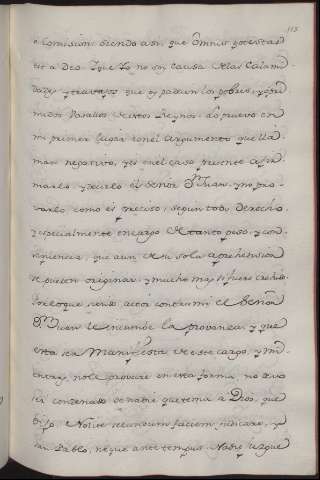 113
Comision: siendo asi, que Omnis potestas
est a Deo. Y que Yo no soy causa de las Calami-
dades, y trabajos que oy padecen los pobres, y opri-
midos Vasallos de estos Reynos: lo pruevo en
mi primer lugar con el Argumento que lla-
man negativo, y es en el caso presente afir-
marlo, y decirlo el Señor D. Juan, y no pro-
varlo como es preciso, segun todo derecho,
y especialmente en cargo de tanto peso, y con-
sequencia, que aun de su sola aprehension
se pueden originar, y mucho mas si fuere creido.
Por lo que siendo actor contra mi el Señor
D. Juan le incumbe la provanza, y que
esta sea Manifiesta de este cargo, y mi-
entras, no le provare en esta forma, no devo
ser condenado de nadie que tema a Dios, que
dijo. Nolite secundum faciem judicare, y
San Pablo, neque ante tempus. Nadie juzgue